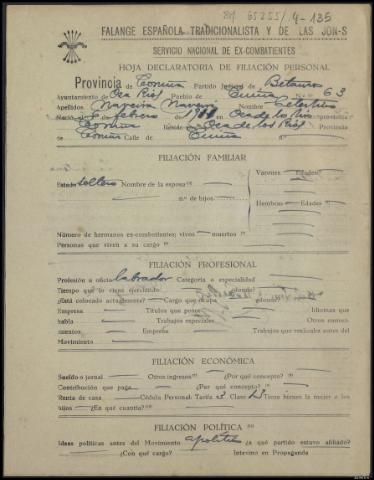 Ref 65255/4-135
FALANGE ESPAÑOLA TRADICIONALISTA Y DE LAS JON-S
SERVICIO NACIONAL DE EX-COMBATIENTES
HOJA DECLARATORIA DE FILIACIÓN PERSONAL
Provincia de Coruña Partido Judicial de Betanzos
Ayuntamiento de Oza Ríos Pueblo de N.º 63
Apellidos Nombre Celestino
Nació de febrero de en Oza de los Ríos
Coruña Reside en Oza de los Ríos Provincia
de Coruña Calle de
FILIACIÓN FAMILIAR
Estado soltero Nombre de la esposa Varones Edades
n.º de hijos
Hembras Edades
Número de hermanos ex-combatientes; vivos muertos
Personas que viven a su cargo
FILIACIÓN PROFESIONAL
Profesión u oficio labrador Categoría o especialidad
Tiempo que lo viene ejerciendo donde
¿Está colocado actualmente? Cargo que ocupa ¿donde?
Empresa Títulos que posee Idiomas que
habla Trabajos especiales Otros nomen-
camientos Empresa Trabajos que realizaba antes del
Movimiento
FILIACIÓN ECONÓMICA
Sueldo o jornal Otros ingresos ¿Por qué concepto?
Contribución que paga ¿Por qué concepto?
Renta de casa Cédula Personal: Tarifa 3 Clase 13 Tiene bienes la mujer o los
hijos ¿En qué cuantía?
FILIACIÓN POLÍTICA
Ideas políticas antes del Movimiento apolítico ¿a qué partido estuvo afiliado?
¿Con qué cargo? Intervino en Propaganda